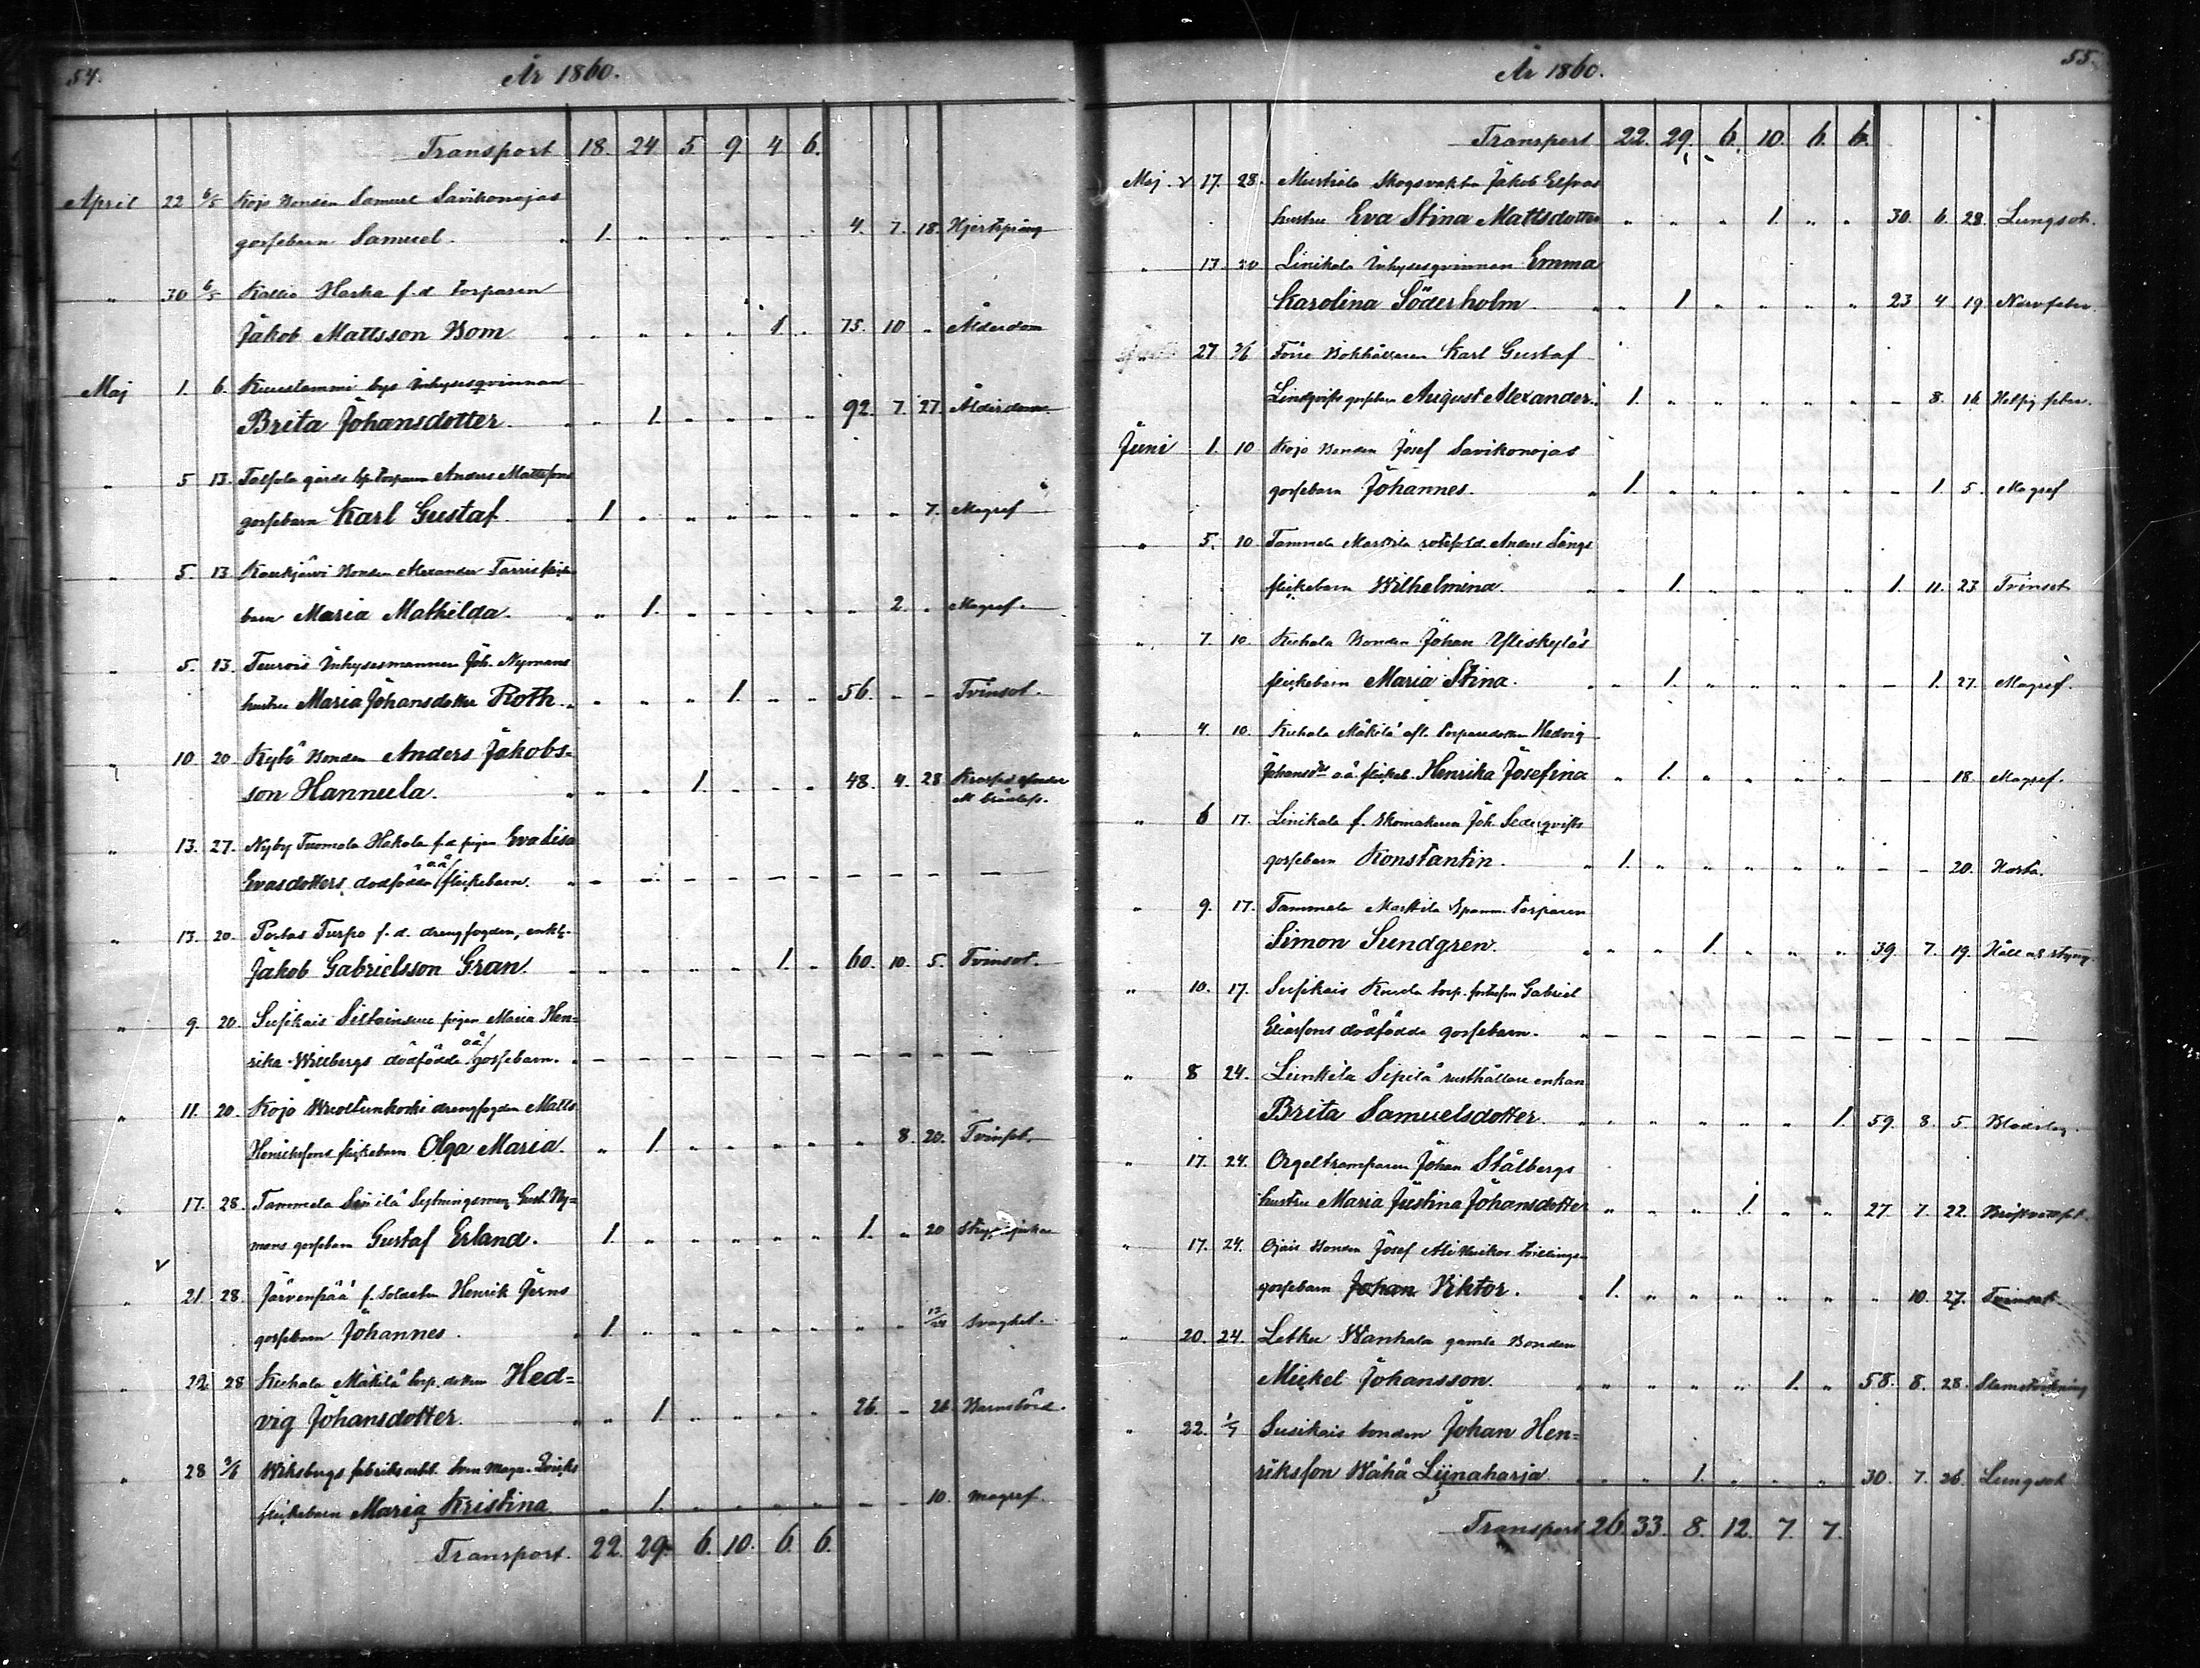 54.
År 1860.
Transport 18. 24 5 9 4 6.
April 22 6/5 Kojo Bonden Samuel Savikonojas
gossebarn Samuel. " 1. " " " " " 4. 7. 18.
" 30 6/5 Kallio Harka f.d. torparen
Jakob Mattsson Bom. " " " " 1. " 75. 10 " Ålderdom
Maj 1. 6. Kuuslammi bys Inhysesqvinnan
Brita Johansdotter. " 1. " " " " 92. 7. 27. Ålderdom
" 5 13. gårds Torparen Anders Mattssons
gossebarn Karl Gustaf. 1 " " " " " " " 7. Magref
" 5. 13 Kaukjärvi Bonden Alexander
barn Maria Mathilda. " 1. " " " " " 2. " Magref.
" 5. 13. Teurois Inhysesmannen Joh. Nymans
hustru Maria Johansdotter Roth. " " " 1. " " 56. " " Tvinsot.
" 10 20 Kylä Bonden Anders Jakobs=
son Hannula. " " 1. " " " 48. 4. 28
" 13. 27. Nyby Tuomola Hakala f.d. pigan Eva Lisa
Evasdotters dödfödda oä flickebarn.
" 13. 20. Portas Turpo f.d. drengfogden, enkl.
Jakob Gabrielsson Gran. " " " " 1. " 60. 10. 5. Tvinsot.
" 9. 20. Susikais pigan Maria Hen=
rika Willbergs dödfödda oä gossebarn.
" 11. 20. Kojo drengfogden Matts
Henrikssons flickebarn Olga Maria. " 1. " " " " " 8. 20. Tvinst.
" 17. 28. Tammela Sytningsman Gust. Ny=
mans gossebarn Gustaf Erland. 1. " " " " " 1. " 20
" 21. 28. Järvenpää f. Soldaten Henrik Jerns
gossebarn Johannes. 1. " " " " " " " Svaghet.
" 22 28 Kuhala Mäkilä torp. dottern Hed=
vig Johansdotter. " 1. " " " " 26. - 26. Barnsbörd.
" 28 3/6 Wiksbergs fabriks arbt.
flickebarn Maria Kristina " 1. " " " " - - 10. magref.
Transport. 22. 29. 6. 10. 6. 6.
55.
År 1860.
Transport 22. 29. 6. 10. 6. 6.
Maj. v 17. 28. Mustiala Skogsvakten Jakob Elfvas
hustru Eva Stina Mattsdotter " " " 1. " " 30. 6. 28. Lungsot.
" 13 20 Linikala Inhysesqvinnan Emma
Karolina Söderholm. " 1 " " " " 23 4 19 Nervfeber.
27 3/6 Bokhållaren Karl Gustaf
Lindqvists gossebarn August Alexander. 1. " " " " " - 8. 16
Juni 1. 10 Kojo Bonden Josef Savikonojas
gossebarn Johannes. " 1. " " " " " - 1 5. Magref
" 5. 10 Tammela Marttila Anders Långs
flickebarn Wilhelmina. " 1. " " " " 1. 11. 23 Tvinsot
" 7. 10. Kuhala Bonden Johan Yliskyläs
flickebarn Maria Stina. " 1. " " " " - 1. 27. Magref.
" 4. 10. Kuhala Mäkilä afl. Torparedottern Hedvig
Johansdrs oä flickeb. Henrika Josefina " 1. " " " " - - 18. Magref.
" 6 17. Linikala f. Skomakaren Joh. Sederqvists
gossebarn Konstantin. " 1. " " " " " - - 20. Hosta.
" 9. 17. Tammela Marttila Spanm. torparen
Simon Sundgren. " " 1. " " " 39. 7. 19. Håll o. styng.
" 10. 17. Susikais torp. Gabriel
Eliassons dödfödda gossebarn.
" 8 24. Lunkila Sipilä rusthållare enkan
Brita Samuelsdotter. " " " " " 1. 59. 8. 5.
" 17. 24. Orgeltramparen Johan Stålbergs
hustru Maria Justina Johansdotter " " " 1. " " 27. 7. 22.
" 17. 24. Ojais Bonden Josef tvillinge
gossebarn Johan Viktor. 1. " " " " " " 10. 27. Tvinsot.
" 20. 24. Letku Wanhala gamle Bonden
Mickel Johansson. " " " " 1. " 58. 8. 28.
" 22. 1/7 Susikais bonden Johan Hen=
riksson Wähä Lijnaharja " " 1. " " " 30. 7. 26. Lungsot
Transport 26. 33. 8. 12. 7. 7.